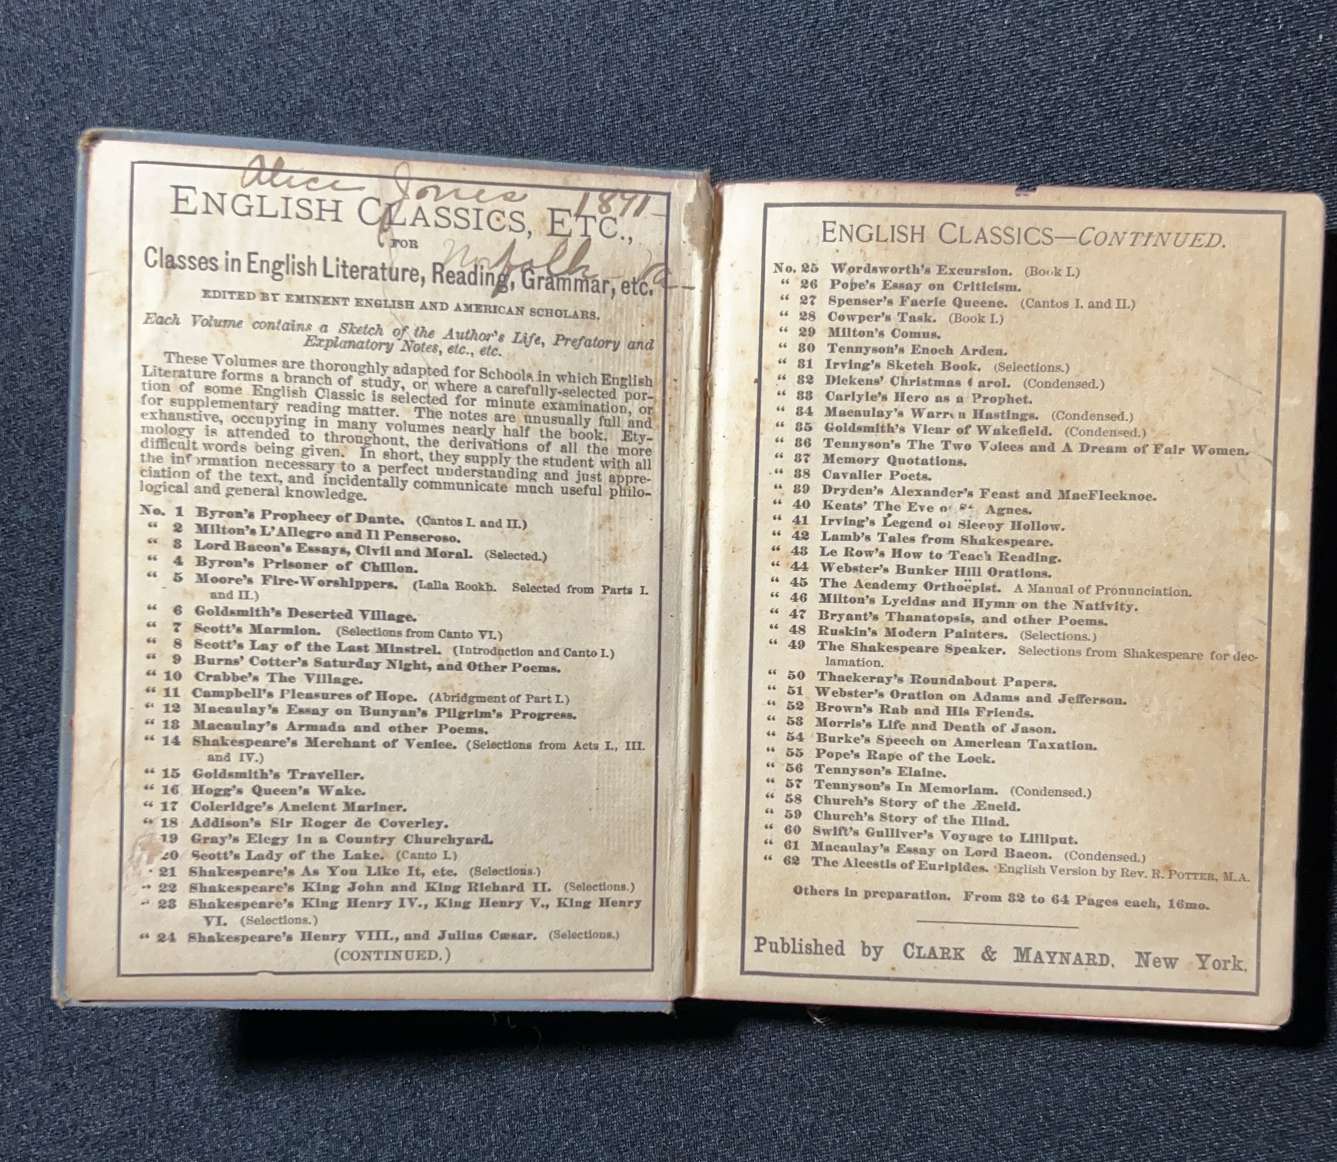 Alice Jones 1891-
ENGLISH CLASSICS, ETC.,
FOR
Norfolk - Va -
Classes in English Literature, Reading, Grammar, etc.
EDITED BY EMINENT ENGLISH AND AMERICAN SCHOLARS.
Each Volume contains a Sketch of the Author's Life, Prefatory and
Explanatory Notes, etc., etc.
These Volumes are thoroughly adapted for Schools in which English
Literature forms a branch of study, or where a carefully-selected por-
tion of some English Classic is selected for minute examination, or
for supplementary reading matter. The notes are unusually full and
exhaustive, occupying in many volumes nearly half the book. Ety-
mology is attended to throughout, the derivations of all the more
difficult words being given. In short, they supply the student with all
the information necessary to a perfect understanding and just appre-
ciation of the text, and incidentally communicate much useful philo-
logical and general knowledge.
No. 1 Byron's Prophecy of Dante. (Cantos I. and II.)
" 2 Milton's L'Allegro and Il Penseroso.
" 3 Lord Bacon's Essays, Civil and Moral. (Selected.)
" 4 Byron's Prisoner of Chillon.
" 5 Moore's Fire-Worshippers. (Lalla Rookh. Selected from Parts I.
and II.)
" 6 Goldsmith's Deserted Village.
" 7 Scott's Marmion. (Selections from Canto VI.)
" 8 Scott's Lay of the Last Minstrel. (Introduction and Canto I.)
" 9 Burns' Cotter's Saturday Night, and Other Poems.
" 10 Crabbe's The Village.
" 11 Campbell's Pleasures of Hope. (Abridgment of Part I.)
" 12 Macaulay's Essay on Bunyan's Pilgrim's Progress.
" 13 Macaulay's Armada and other Poems.
" 14 Shakespeare's Merchant of Venice. (Selections from Acts I., III.
and IV.)
" 15 Goldsmith's Traveller.
" 16 Hogg's Queen's Wake.
" 17 Coleridge's Ancient Mariner.
" 18 Addison's Sir Roger de Coverley.
19 Gray's Elegy in a Country Churchyard.
20 Scott's Lady of the Lake. (Canto I.)
" 21 Shakespeare's As You Like It, etc. (Selections.)
" 22 Shakespeare's King John and King Richard II. (Selections.)
" 23 Shakespeare's King Henry IV., King Henry V., King Henry
VI. (Selections.)
" 24 Shakespeare's Henry VIII., and Julius Cæsar. (Selections.)
(CONTINUED.)
ENGLISH CLASSICS—CONTINUED.
No. 25 Wordsworth's Excursion. (Book I.)
" 26 Pope's Essay on Criticism.
" 27 Spenser's Faerie Queene. (Cantos I. and II.)
" 28 Cowper's Task. (Book I.)
" 29 Milton's Comus.
" 30 Tennyson's Enoch Arden.
" 31 Irving's Sketch Book. (Selections.)
" 32 Dickens' Christmas Carol. (Condensed.)
" 33 Carlyle's Hero as a Prophet.
" 34 Macaulay's Warren Hastings. (Condensed.)
" 35 Goldsmith's Vicar of Wakefield. (Condensed.)
" 36 Tennyson's The Two Voices and A Dream of Fair Women.
" 37 Memory Quotations.
" 38 Cavalier Poets.
" 39 Dryden's Alexander's Feast and MacFlecknoe.
" 40 Keats' The Eve of St. Agnes.
" 41 Irving's Legend of Sleepy Hollow.
" 42 Lamb's Tales from Shakespeare.
" 43 Le Row's How to Teach Reading.
" 44 Webster's Bunker Hill Orations.
" 45 The Academy Orthoëpist. A Manual of Pronunciation.
" 46 Milton's Lycidas and Hymn on the Nativity.
" 47 Bryant's Thanatopsis, and other Poems.
" 48 Ruskin's Modern Painters. (Selections.)
" 49 The Shakespeare Speaker. Selections from Shakespeare for dec-
lamation.
" 50 Thackeray's Roundabout Papers.
" 51 Webster's Oration on Adams and Jefferson.
" 52 Brown's Rab and His Friends.
" 53 Morris's Life and Death of Jason.
" 54 Burke's Speech on American Taxation.
" 55 Pope's Rape of the Lock.
" 56 Tennyson's Elaine.
" 57 Tennyson's In Memoriam. (Condensed.)
" 58 Church's Story of the Æneid.
" 59 Church's Story of the Iliad.
" 60 Swift's Gulliver's Voyage to Lilliput.
" 61 Macaulay's Essay on Lord Bacon. (Condensed.)
" 62 The Alcestis of Euripides. English Version by Rev. R. POTTER, M.A.
Others in preparation. From 32 to 64 Pages each, 16mo.
Published by CLARK & MAYNARD, New York.